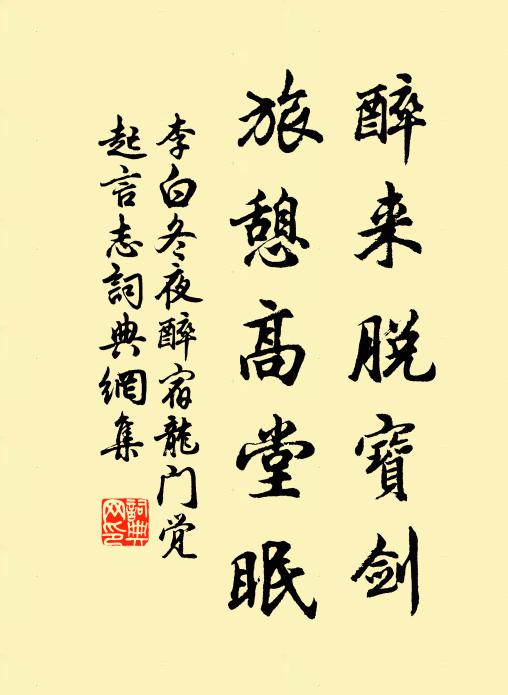 醉来脱寶劍
旅憩高堂眠
李白冬夜醉宿龍门觉
起言志詞典網集
詞典网印